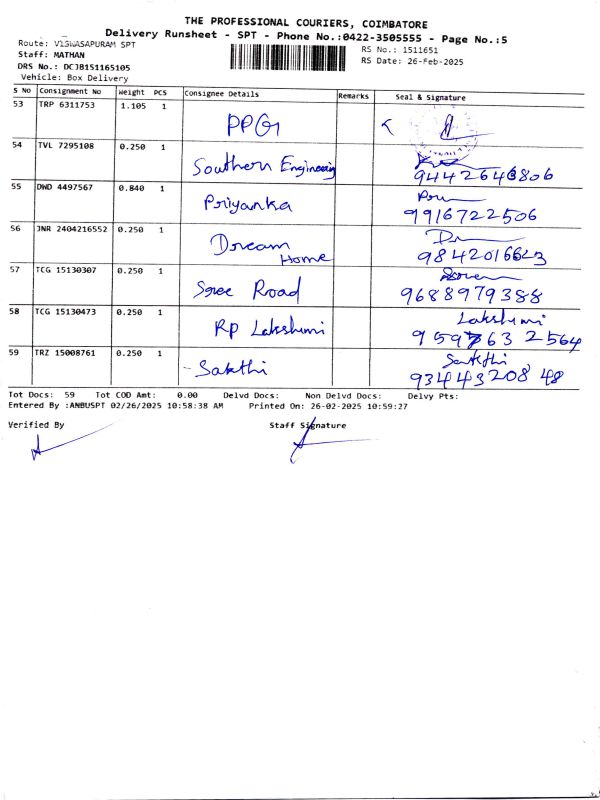 THE PROFESSIONAL COURIERS, COIMBATORE
Delivery Runsheet - SPT - Phone No.:0422-3505555 - Page No.:5
Route: VISWASAPURAM SPT
Staff: MATHAN
DRS No.: DCJB151165105
Vehicle: Box Delivery
RS No.: 1511651
RS Date: 26-Feb-2025
S No Consignment No Weight PCS Consignee Details Remarks Seal & Signature
53 TRP 6311753 1.105 1 PPG
54 TVL 7295108 0.250 1 Southern Engineering 9442646806
55 DWD 4497567 0.840 1 Priyanka 9916722506
56 JNR 2404216552 0.250 1 Dream Home 9842016623
57 TCG 15130307 0.250 1 Sree Road 9688979388
58 TCG 15130473 0.250 1 Rp Lakshmi Lakshmi 9597632564
59 TRZ 15008761 0.250 1 Sakthi Sakthi 9344320848
Tot Docs: 59 Tot COD Amt: 0.00 Delvd Docs: Non Delvd Docs: Delvy Pts:
Entered By :ANBUSPT 02/26/2025 10:58:38 AM Printed On: 26-02-2025 10:59:27
Verified By Staff Signature